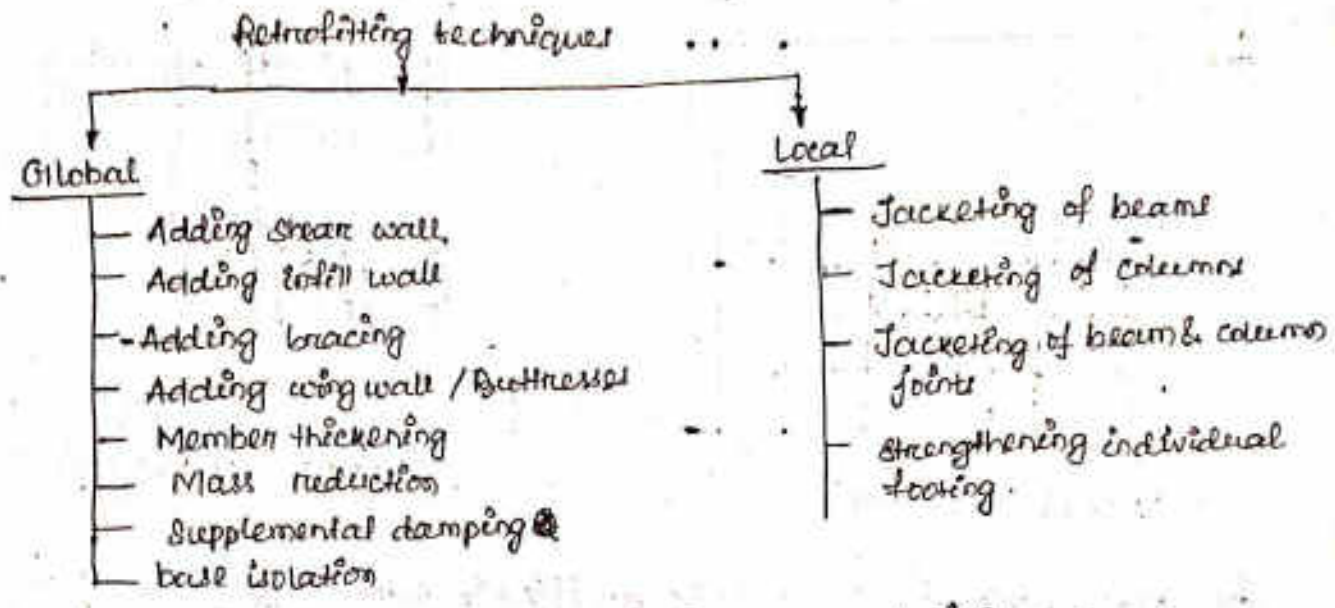 Retrofitting techniques
Global
Adding shear wall.
Adding infill wall
Adding bracing
Adding wing wall / Buttresses
Member thickening
Mass reduction
Supplemental damping
base isolation
Local
Jacketing of beams
Jacketing of columns
Jacketing of beam & column
joints
strengthening individual
footing.